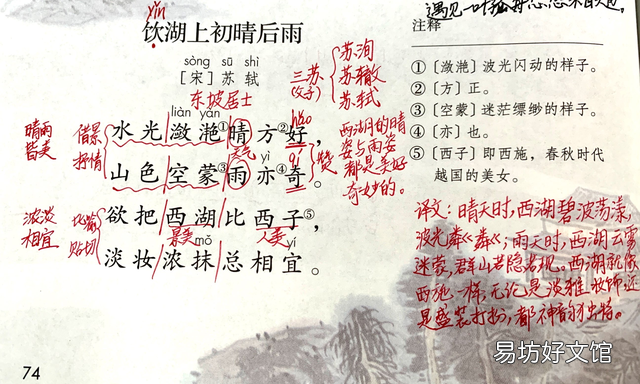 遇见一叶孤舟
注释
yǐn
饮湖上初晴后雨
sòng sū shì
[宋] 苏轼
东坡居士
三苏
(父子)
苏洵
苏辙
苏轼
①〔潋滟〕波光闪动的样子。
②〔方〕正。
③〔空蒙〕迷茫缥缈的样子。
④〔亦〕也。
⑤〔西子〕即西施，春秋时代
越国的美女。
晴雨
皆美
借景
抒情
liàn yàn
hǎo
水光潋滟①晴方②好，
天气
yì
qí
山色空蒙③雨亦④奇。
赞
西湖的晴
姿与雨姿
都是美好
奇妙的。
浓淡
相宜
比喻
贴切
欲把西湖比西子⑤，
景美
mǒ
人美
yí
淡妆浓抹总相宜。
译文：晴天时，西湖碧波荡漾，
波光粼粼；雨天时，西湖云雾
迷蒙，群山若隐若现。西湖就像
西施一样，无论是淡雅妆饰还
是盛装打扮，都神韵独特。
74
易坊好文馆